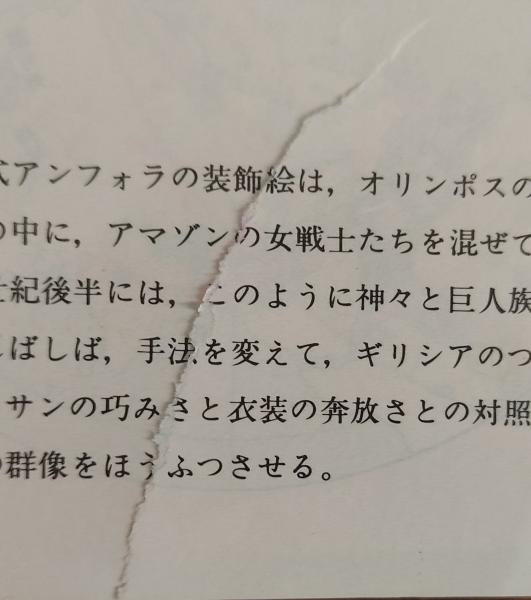 式アンフォラの装飾絵は，オリンポスの
の中に，アマゾンの女戦士たちを混ぜて
世紀後半には，このように神々と巨人族
しばしば，手法を変えて，ギリシアのつ
サンの巧みさと衣装の奔放さとの対照
の群像をほうふつさせる。